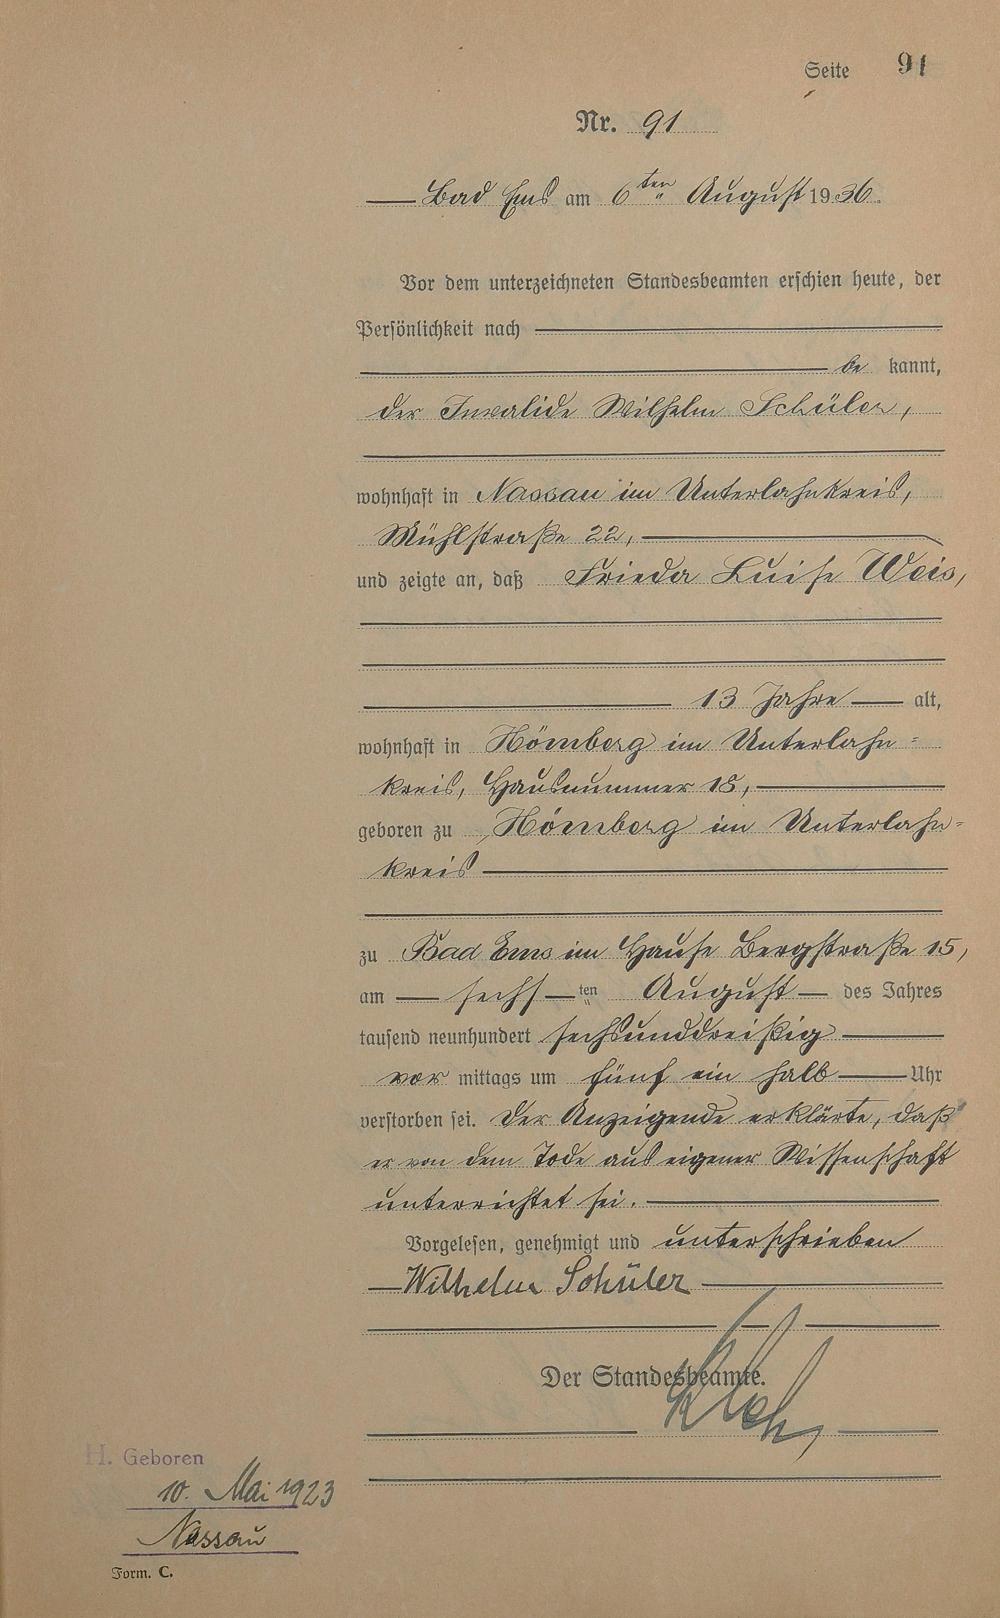 Seite 91
Nr. 91
Bad Ems am 6ten August 1936.
Vor dem unterzeichneten Standesbeamten erschien heute, der
Persönlichkeit nach
be kannt,
der Invalide Wilhelm Schüler,
wohnhaft in Nassau im Unterlahnkreis,
Mühlstraße 22,
und zeigte an, daß Frieda Luise Weis,
13 Jahre alt,
wohnhaft in Hömberg im Unterlahn=
kreis, Hausnummer 18,
geboren zu Hömberg im Unterlahn=
kreis
zu Bad Ems im Hause Bergstraße 15,
am sechsten August des Jahres
tausend neunhundert sechsunddreißig
vor mittags um fünf ein halb Uhr
verstorben sei. Der Anzeigende erklärte, daß
er von dem Tode aus eigener Wissenschaft
unterrichtet sei.
Vorgelesen, genehmigt und unterschrieben
Wilhelm Schüler
Der Standesbeamte.
H. Geboren
10. Mai 1923
Nassau
Form. C.